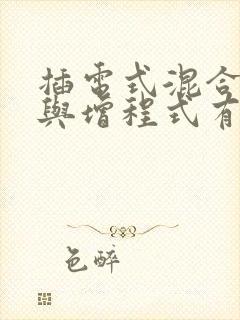 插電式混合
與增程式有
色醉